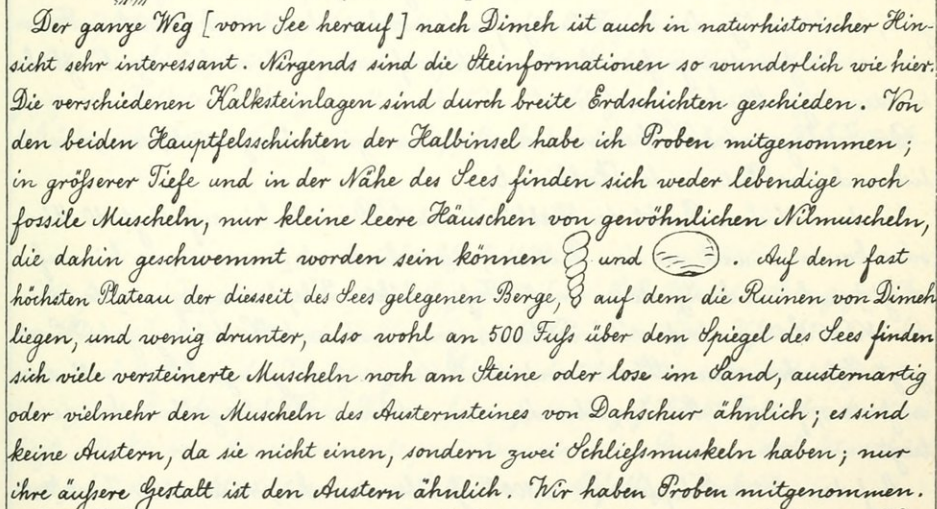 Der ganze Weg [vom See herauf] nach Dimeh ist auch in naturhistorischer Hin-
sicht sehr interessant. Nirgends sind die Steinformationen so wunderlich wie hier.
Die verschiedenen Kalksteinlagen sind durch breite Erdschichten geschieden. Von
den beiden Hauptfelsschichten der Halbinsel habe ich Proben mitgenommen;
in größserer Tiefe und in der Nähe des Sees finden sich weder lebendige noch
fossile Muscheln, nur kleine leere Häuschen von gewöhnlichen Nilmuscheln,
die dahin geschwemmt worden sein können und . Auf dem fast
höchsten Plateau der diesseit des Sees gelegenen Berge, auf dem die Ruinen von Dimeh
liegen, und wenig drunter, also wohl an 500 Fuſs über dem Spiegel des Sees finden
sich viele versteinerte Muscheln noch am Steine oder lose im Sand, austernartig
oder vielmehr den Muscheln des Austernsteines von Dahschur ähnlich; es sind
keine Austern, da sie nicht einen, sondern zwei Schlieſsmuskeln haben; nur
ihre äuſsere Gestalt ist den Austern ähnlich. Wir haben Proben mitgenommen.